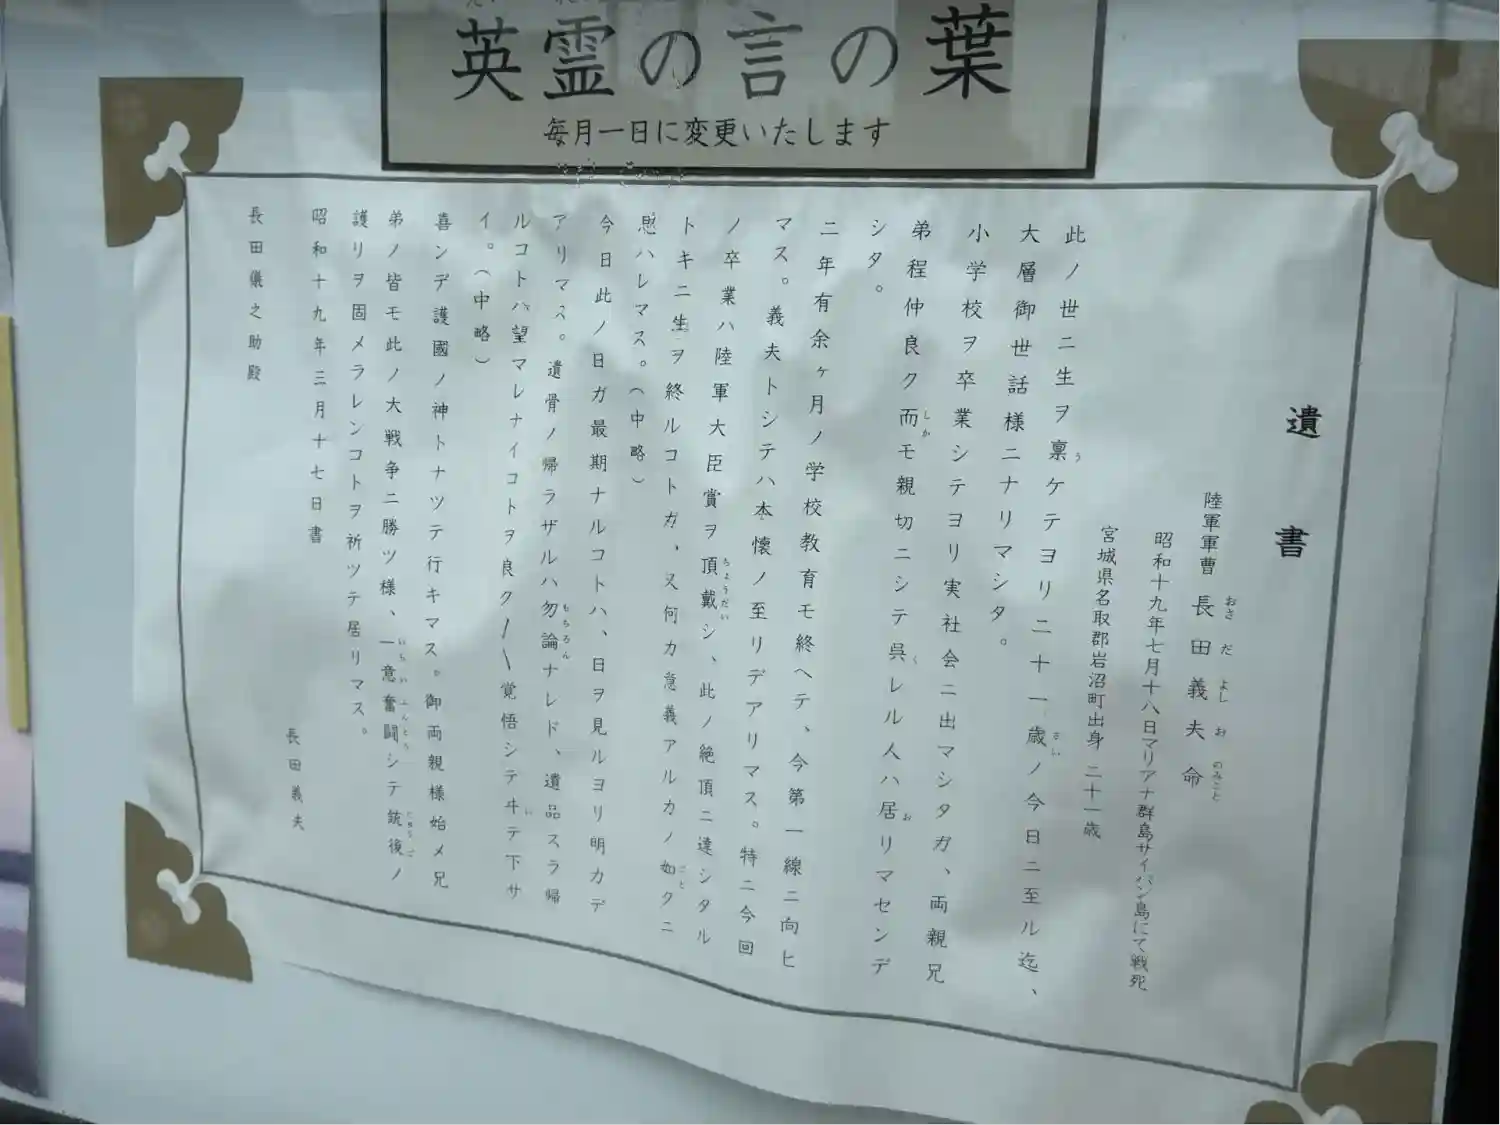 英霊の言の葉
毎月一日に変更いたします
遺書
陸軍軍曹 長田義夫命
昭和十九年七月十八日マリアナ群島サイパン島にて戦死
宮城県名取郡岩沼町出身 二十一歳
此ノ世ニ生ヲ禀ケテヨリ二十一歳ノ今日ニ至ル迄、
大層御世話様ニナリマシタ。
小学校ヲ卒業シテヨリ実社会ニ出マシタガ、両親兄
弟程仲良ク而モ親切ニシテ呉レル人ハ居リマセンデ
シタ。
二年有余ヶ月ノ学校教育モ終ヘテ、今第一線ニ向ヒ
マス。義夫トシテハ本懐ノ至リデアリマス。特ニ今回
ノ卒業ハ陸軍大臣賞ヲ頂戴シ、此ノ絶頂ニ達シタル
トキニ生ヲ終ルコトガ、又何カ意義アルカノ如クニ
思ハレマス。（中略）
今日此ノ日ガ最期ナルコトハ、日ヲ見ルヨリ明カデ
アリマス。遺骨ノ帰ラザルハ勿論ナレド、遺品スラ帰
ルコトハ望マレナイコトヲ良ク〳〵覚悟シテヰテ下サ
イ。（中略）
喜ンデ護國ノ神トナツテ行キマス。御両親様始メ兄
弟ノ皆モ此ノ大戦争ニ勝ツ様、一意奮闘シテ銃後ノ
護リヲ固メラレンコトヲ祈ツテ居リマス。
昭和十九年三月十七日書
長田義夫
長田儀之助殿